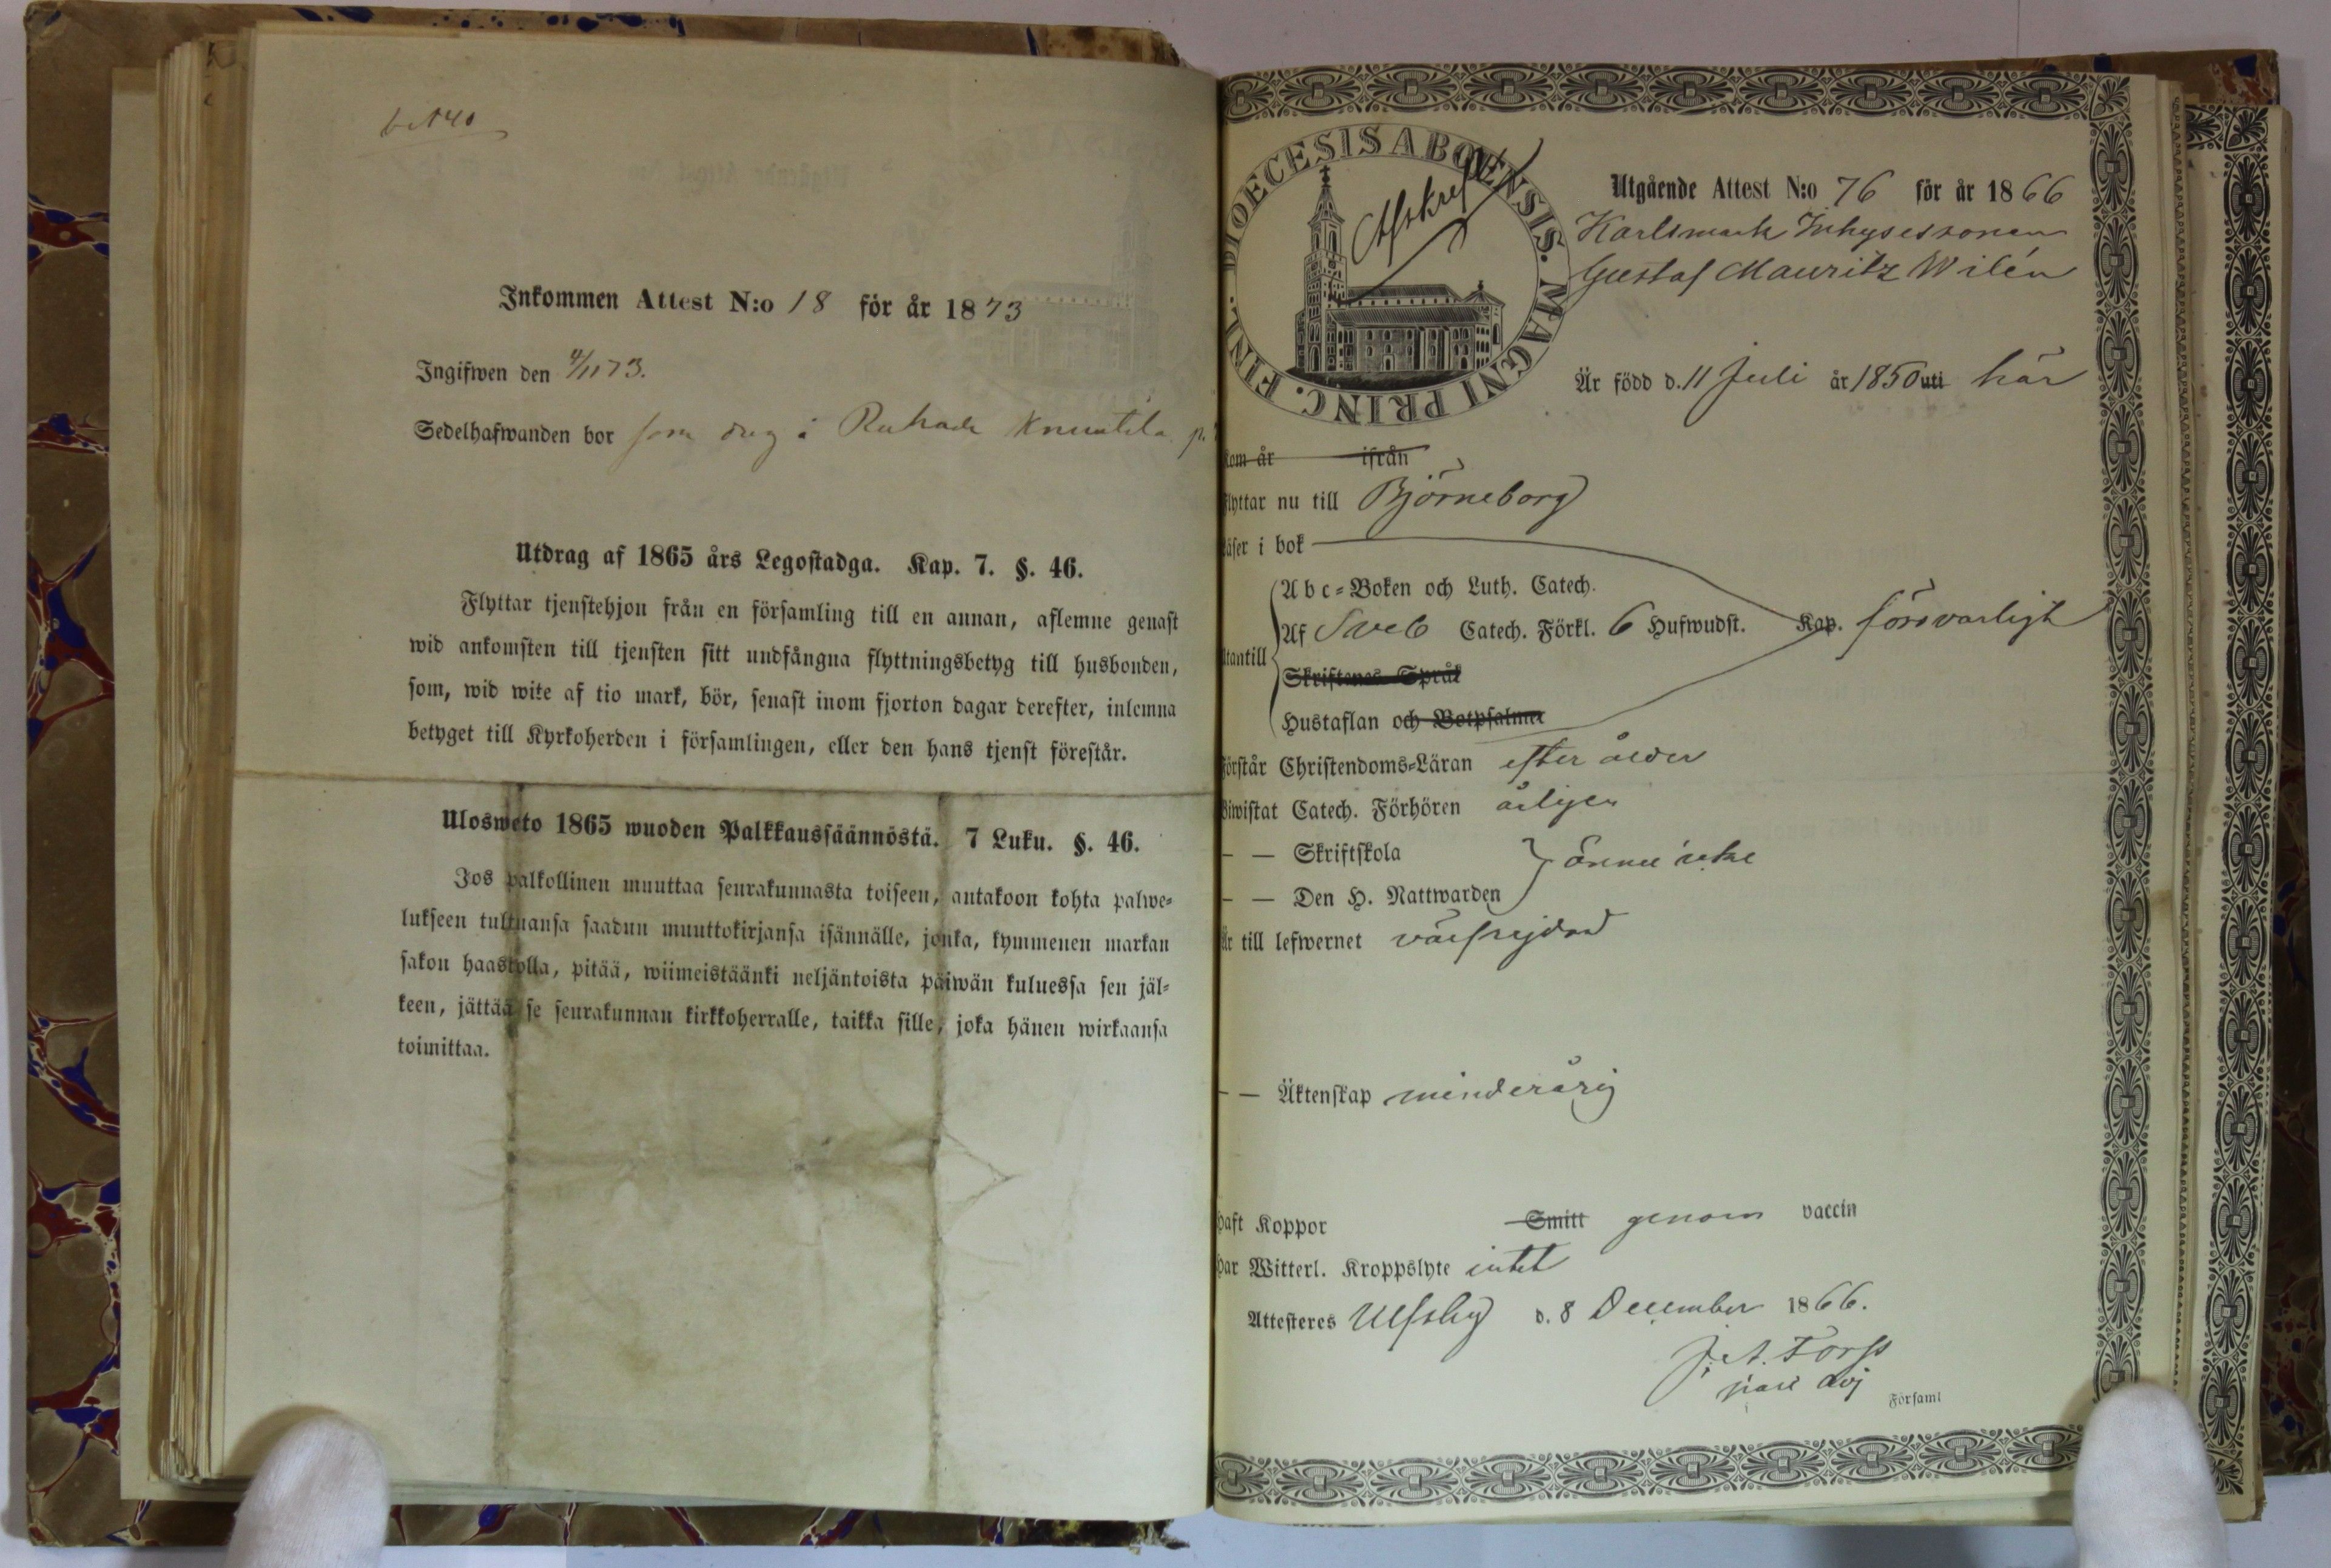 Inkommen Attest N:o 18 för år 1873
Ingifwen den 4/11 73.
Sedelhafwanden bor som drg i
Utdrag af 1865 års Legostadga. Kap. 7. §. 46.
Flyttar tjenstehjon från en församling till en annan, aflemne genast
wid ankomsten till tjensten sitt undfångna flyttningsbetyg till husbonden,
som, wid wite af tio mark, bör, senast inom fjorton dagar derefter, inlemna
betyget till Kyrkoherden i församlingen, eller den hans tjenst förestår.
Ulosweto 1865 wuoden Palkkaussäännöstä. 7 Luku. §. 46.
Jos palkollinen muuttaa seurakunnasta toiseen, antakoon kohta palwe=
lukseen tultuansa saadun muuttokirjansa isännälle, jonka, kymmenen markan
sakon haastolla, pitää, wiimeistäänki neljäntoista päiwän kuluessa sen jäl=
keen, jättää se seurakunnan kirkkoherralle, taikka sille, joka hänen wirkaansa
toimittaa.
DIOECESIS ABOENSIS. MAGNI PRINC. FINL.
Utgående Attest N:o 76 för år 1866
Karlsmark Inhysessonen
Gustaf Mauritz Wilén
Är född d. 11 Juli år 1850 uti här
kom år ifrån
flyttar nu till Björneborg
läser i bok
Abc=Boken och Luth. Catech.
Af Sveb Catech. Förkl. 6 Hufwudst. Kap. försvarligt
utantill
Skriftenes Språk
Hustaflan och Botpsalmer
förstår Christendoms=Läran efter ålder
Biwistat Catech. Förhören årligen
— — Skriftskola
ännu icke
— — Den H. Nattwarden
Är till lefwernet välfrejdad
— — Äktenskap minderårig
haft Koppor Smitt genom vaccin
har Witterl. Kroppslyte intet
Attesteres Ulfsby d. 8 December 1866.
J. A. Forss
Församl